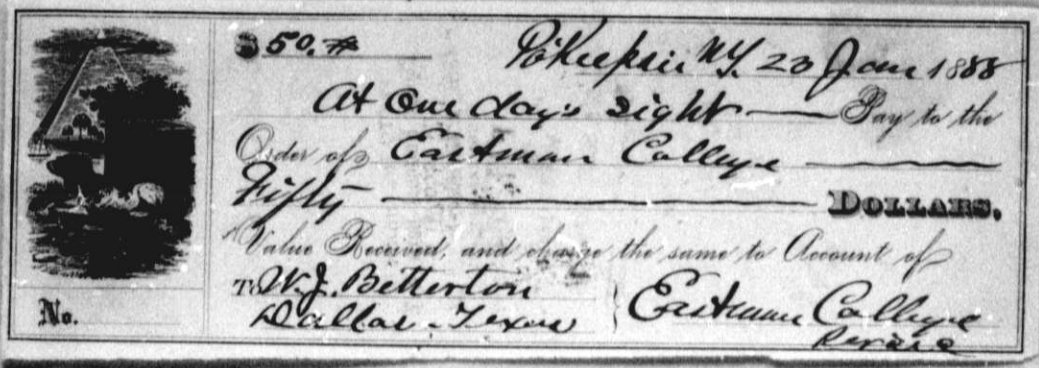 $ 50.#
Po'Keepsie N.Y. 23 Jan 1888
At One day's sight — Pay to the
Order of Eastman College
Fifty — DOLLARS.
Value Received, and charge the same to Account of
To W. J. Betterton
Dallas - Texas
Eastman College
No.